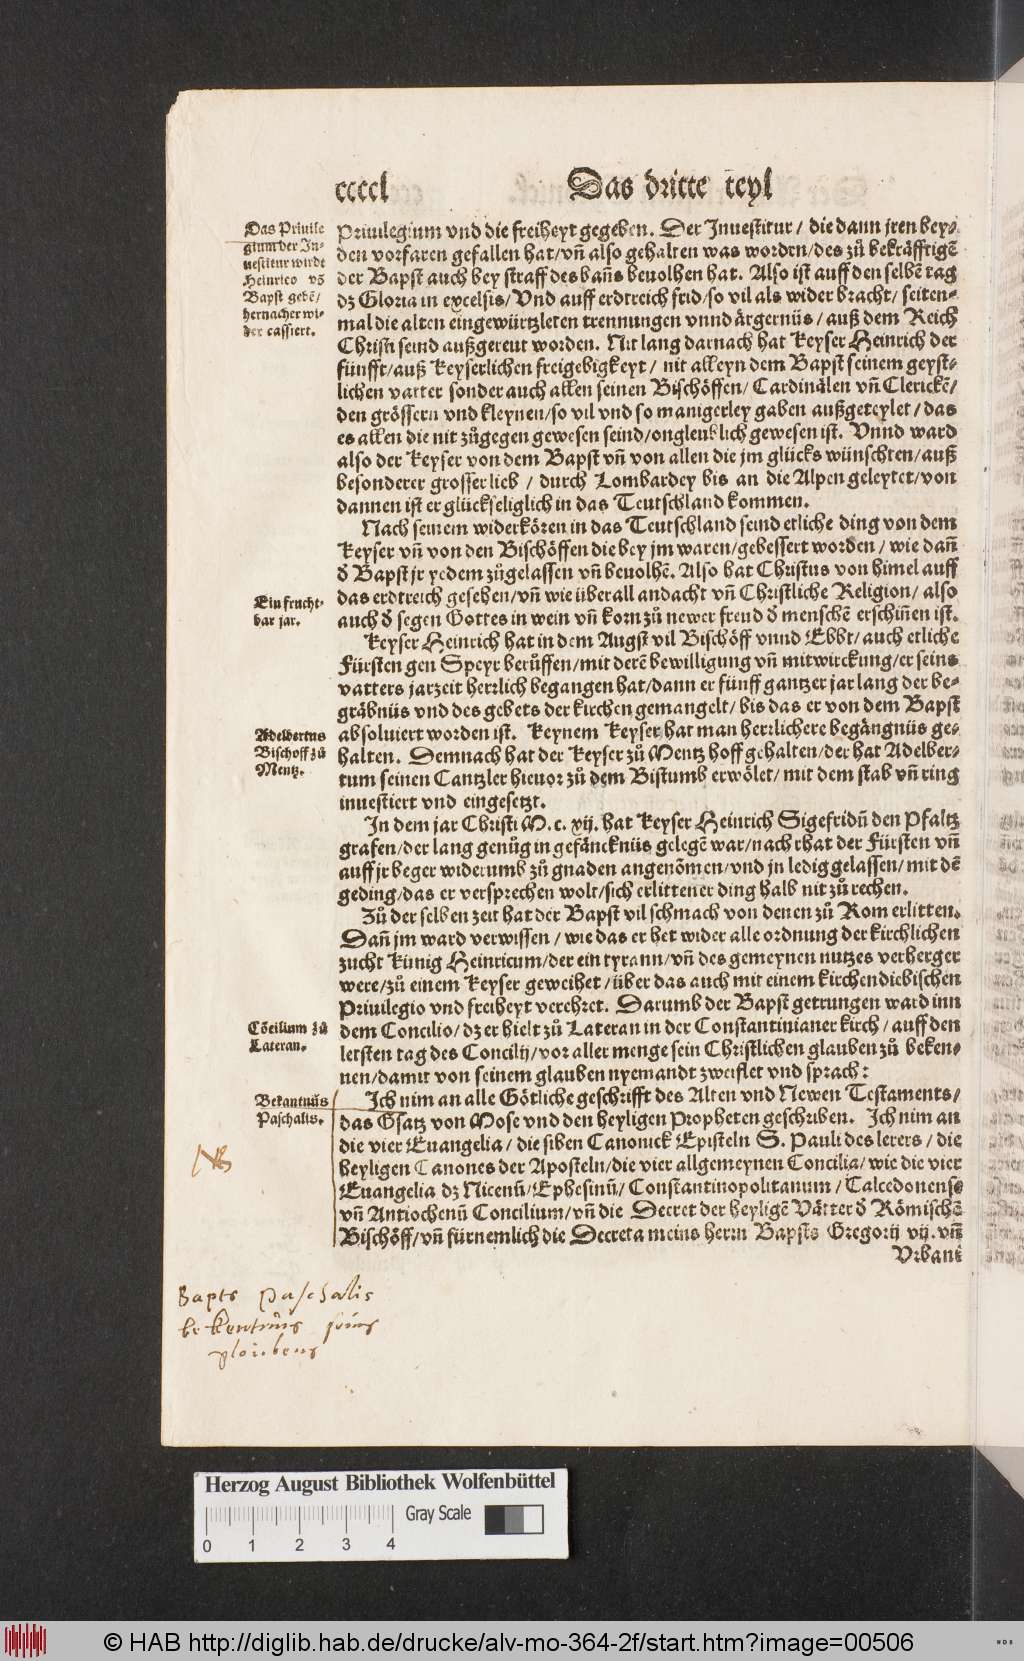 ccccl
Das dritte teyl
Das Priuile
gium der In-
uestitur wirdt
Heinrico võ
Bapst gebẽ/
hernacher wi-
der cassiert.
Priuilegium vnd die freiheyt gegeben. Der Inuestitur / die dann jren bey-
den vorfaren gefallen hat/vñ also gehalten was worden/des zů bekräfftigẽ
der Bapst auch bey straff des bañs beuolhen hat. Also ist auff den selbẽ tag
dz Gloria in excelsis/Vnd auff erdtreich frid/so vil als wider bracht/ seiten-
mal die alten eingewürtzleten trennungen vnnd ärgernüs/ auß dem Reich
Christi seind außgereut worden. Nit lang darnach hat Keyser Heinrich der
fünfft/auß Keyserlichen freigebigkeyt / nit alleyn dem Bapst seinem geyst-
lichen vatter sonder auch allen seinen Bischöffen/ Cardinälen vñ Clerickẽ/
den grössern vnd kleynen/so vil vnd so manigerley gaben außgeteylet/das
es allen die nit zůgegen gewesen seind/ongleublich gewesen ist. Vnnd ward
also der Keyser von dem Bapst vñ von allen die jm glücks wünschten/auß
besonderer grosser lieb / durch Lombardey bis an die Alpen geleytet/von
dannen ist er glückseliglich in das Teutschland kommen.
Nach seinem widerkören in das Teutschland seind etliche ding von dem
Keyser vñ von den Bischöffen die bey jm waren/gebessert worden / wie dañ
d̕ Bapst jr yedem zůgelassen vñ beuolhẽ. Also hat Christus von himel auff
das erdtreich gesehen/vñ wie überall andacht vñ Christliche Religion/ also
auch d̕ segen Gottes in wein vñ korn zů newer freud d̕ menschẽ erschiñen ist.
Ein frucht-
bar jar.
Keyser Heinrich hat in dem Augst vil Bischöff vnnd Ebbt/ auch etliche
Fürsten gen Speyr berůffen/mit derẽ bewilligung vñ mitwirckung/er seins
vatters jarzeit herzlich begangen hat/dann er fünff gantzer jar lang der be-
gräbnüs vnd des gebets der kirchen gemangelt/ bis das er von dem Bapst
absoluiert worden ist. Keynem Keyser hat man herrlichere begängnüs ge-
halten. Demnach hat der Keyser zů Mentz hoff gehalten/der hat Adelber-
tum seinen Cantzler hieuor zů dem Bistumb erwölet/ mit dem stab vñ ring
inuestiert vnd eingesetzt.
Adelbertus
Bischoff zů
Mentz.
In dem jar Christi M. c. xij. hat Keyser Heinrich Sigefridũ den Pfaltz
grafen/der lang genůg in gefäncknüs gelegẽ war/nach rhat der Fürsten vñ
auff jr beger widerumb zů gnaden angenõmen/vnd jn ledig gelassen/ mit dẽ
geding/das er versprechen wolt/sich erlittener ding halb nit zů rechen.
Zů der selben zeit hat der Bapst vil schmach von denen zů Rom erlitten.
Dañ jm ward verwissen / wie das er het wider alle ordnung der kirchlichen
zucht Künig Heinricum/der ein tyrann/vñ des gemeynen nutzes verherger
were/zů einem Keyser geweihet /über das auch mit einem kirchendiebischen
Priuilegio vnd freiheyt verehret. Darumb der Bapst getrungen ward inn
dem Concilio/dz er hielt zů Lateran in der Constantinianer kirch/ auff den
letsten tag des Concilij/vor aller menge sein Christlichen glauben zů beken-
nen/damit von seinem glauben nyemandt zweiflet vnd sprach:
Cõcilium zů
Lateran.
Bekantnüs
Paschalis.
Ich nim an alle Götliche geschrifft des Alten vnd Newen Testaments/
das Gsatz von Mose vnd den heyligen Propheten geschriben. Ich nim an
die vier Euangelia / die siben Canonick Episteln S. Pauli des lerers / die
heyligen Canones der Aposteln/die vier allgemeynen Concilia/ wie die vier
Euangelia dz Nicenũ/Ephesinũ/ Constantinopolitanum / Calcedonense
vñ Antiochenũ Concilium/vñ die Decret der heyligẽ Vätter d̕ Römischẽ
Bischöff/vñ fürnemlich die Decreta meins herrn Bapsts Gregorij vij. vñ
Vrbani
NB
Bapts Paschalis
bekentnus seins
gloubens
Herzog August Bibliothek Wolfenbüttel
Gray Scale
0 1 2 3 4
© HAB http://diglib.hab.de/drucke/alv-mo-364-2f/start.htm?image=00506